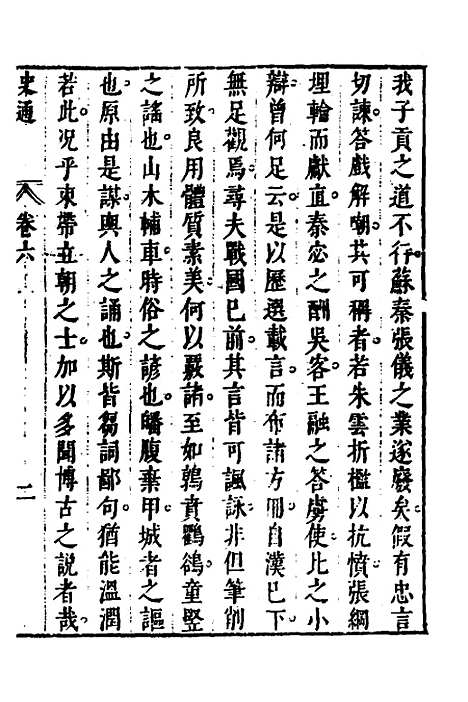 我子貢之道不行蘇秦張儀之業遂廢矣假有忠言
切諫答戲解嘲其可稱者若朱雲折檻以抗憤張綱
埋輪而獻直秦宓之酬吳客王融之答虜使比之小
辯曾何足云是以歷選載言而布諸方冊自漢已下
無足觀焉尋夫戰國已前其言皆可諷詠非但筆削
所致良用體質素美何以覈諸至如鶉賁鸜鵒童竪
之謠也山木輔車時俗之諺也皤腹棄甲城者之謳
也原由是謀輿人之誦也斯皆芻詞鄙句猶能温潤
若此况乎束帶立朝之士加以多聞博古之說者哉
史通 卷六 二